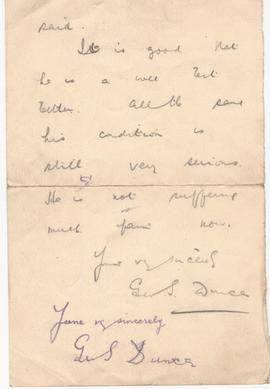 said.
It is good that
he is a wee bit
better. All the same
his condition is
still very serious.
He is not suffering
much pain now.
Yours vy sincerely
Geo S. Duncan
Yours vy sincerely
Geo S Duncan